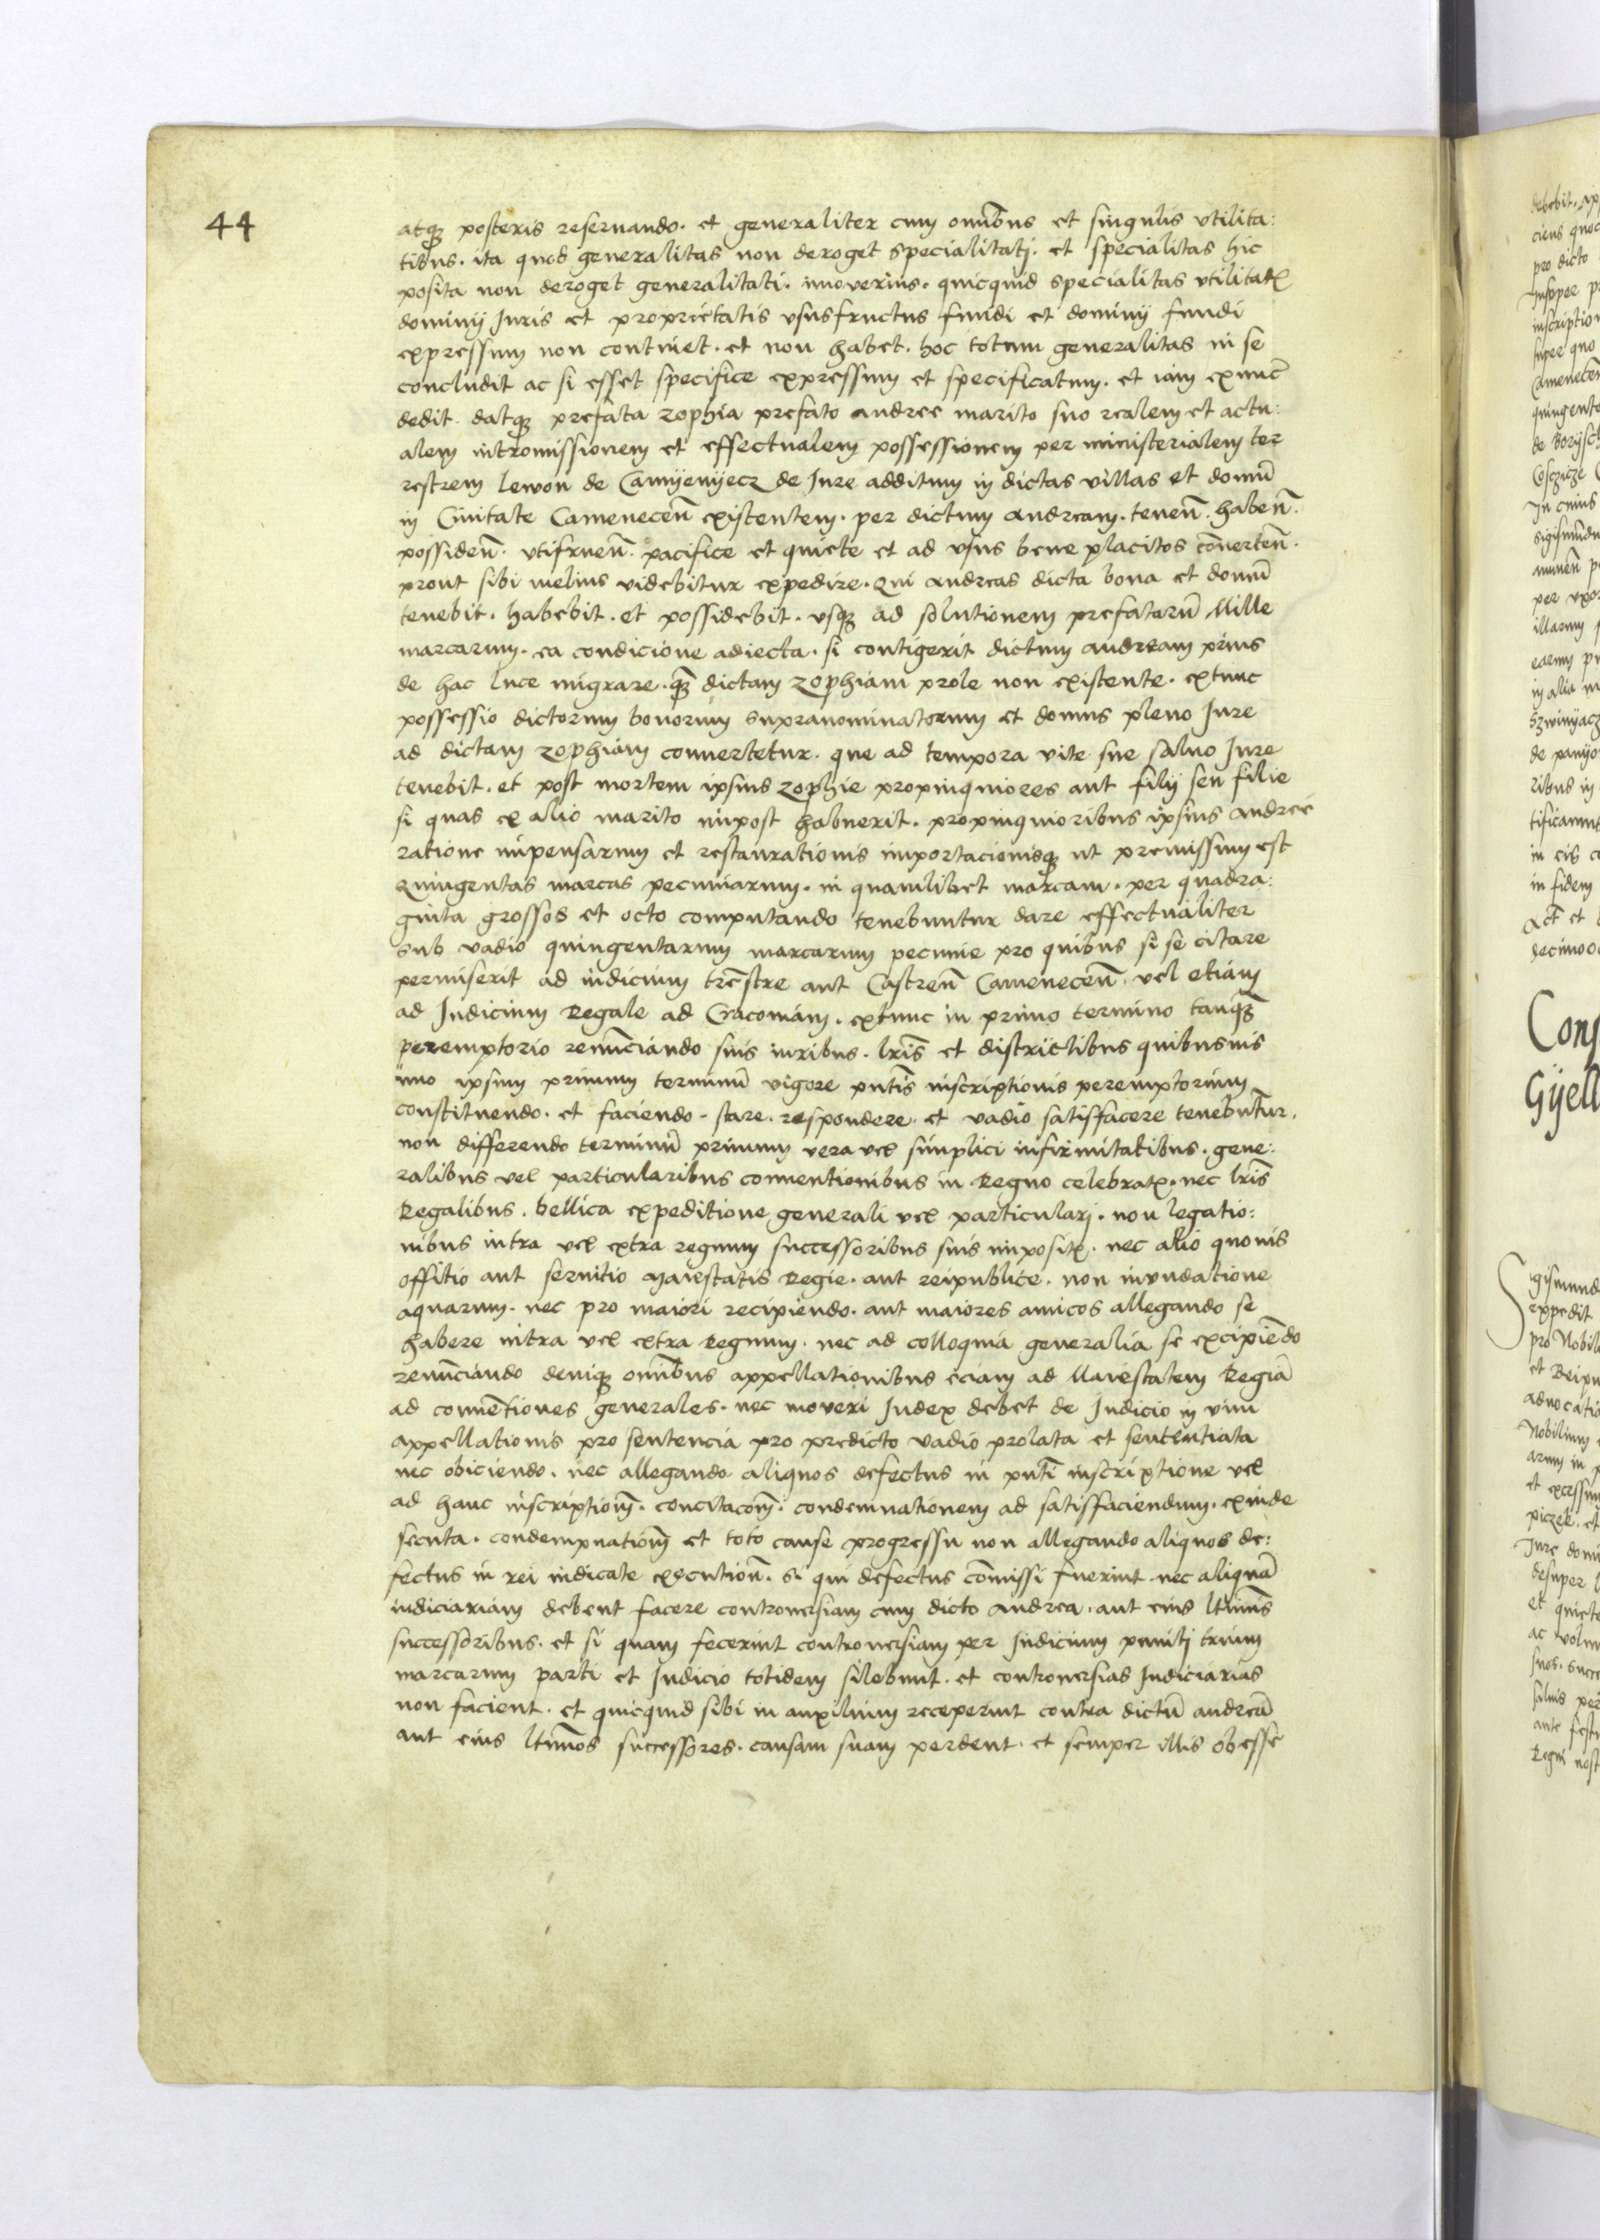 44
atq₃ posteris reseruando. et generaliter cum omībus et singulis vtilita:
tibus. ita quod generalitas non deroget specialitatj. et specialitas hic
posita non deroget generalitati. imoverius. quicquid specialitas vtilitatꝭ
dominij Iuris et proprietatis vsusfructus fundi et dominij fundi
expressum non continet. et non habet. hoc totum generalitas in se
concludit ac si esset specifice expressum et specificatum. et iam exnunc
dedit. datq₃ prefata zophia prefato andree marito suo realem et actu:
alem intromissionem et effectualem possessionem per ministerialem ter
restrem lewon de Camyenyecz de Iure additum in dictas villas et domū
in Ciuitate Camenecen̄ existentem. per dictum andream. tenen̄. haben̄.
possiden̄. vtifruen̄. pacifice et quiete et ad vsus bene placitos cōuerten̄.
prout sibi melius videbitur expedire. Qui andreas dicta bona et domū
tenebit. habebit. et possidebit. vsq₃ ad solutionem prefatarū Mille
marcarum. ea condicione adiecta. si contigerit dictum andream prius
de hac luce migrare. q₃ dictam zophiam prole non existente. extunc
possessio dictorum bonorum supranominatorum et domus pleno Iure
ad dictam zophiam conuertetur. que ad tempora vite sue saluo Iure
tenebit. et post mortem ipsius zophie propinquiores aut filij seu filie
si quas ex alio marito inpost habuerit. propinquioribus ipsius andree
ratione inpensarum et restaurationis importacionisq₃ ut premissum est
Quingentas marcas pecuniarum. in quamlibet marcam. per quadra:
ginta grossos et octo computando tenebuntur dare effectualiter
sub vadio quingentarum marcarum pecunie pro quibus si se citare
permiserit ad iudicium trēstre aut Castren̄ Camenecen̄. vel etiam
ad Iudicium Regale ad Cracouiam. extunc in primo termino tanq₃
peremptorio renūciando suis iuribus. lrīs et districtibus quibusuis
imo ipsum primum terminū vigore pn̄tis inscriptionis peremptorium
constituendo. et faciendo. stare. respondere. et vadio satisfacere tenebūtur.
non differendo terminū primum vera vel simplici infirmitatibus. gene:
ralibus vel particularibus conuentionibus in Regno celebratꝭ. nec lrīs
Regalibus. bellica expeditione generali vel particularj. non legatio:
nibus intra vel extra regnum successoribus suis impositꝭ. nec alio quouis
offitio aut seruitio Maiestatis Regie. aut reipublice. non inundatione
aquarum. nec pro maiori recipiendo. aut maiores amicos allegando se
habere intra vel extra Regnum. nec ad colloquia generalia se excipiēdo
renūciando deniq₃ omībus appellationibus eciam ad Maiestatem Regiā
ad conuētiones generales. nec moueri Iudex debet de Iudicio in vim
appellationis pro sentencia pro predicto vadio prolata et sententiata
nec obiciendo. nec allegando aliquos defectus in pn̄ti inscriptione vel
ad hanc inscriptionē. concitacōm̄. condemnationem ad satisfaciendum. exinde
secuta. condempnationē et toto cause progressu non allegando aliquos de:
fectus in rei iudicate executionē. si qui defectus cōmissi fuerint. nec aliquā
iudiciariam debent facere controuersiam cum dicto andrea. aut eius ltīmis
successoribus. et si quam fecerint controuersiam per Iudicium puniti trium
marcarum parti et Iudicio totidem silebunt. et controuersias Iudiciarias
non facient. et quicquid sibi in auxilium receperint contra dictū andreā
aut eius ltīmos successores. causam suam perdent. et semper illis obesse
debebit. ap
pro dicto
Cons
Gyell